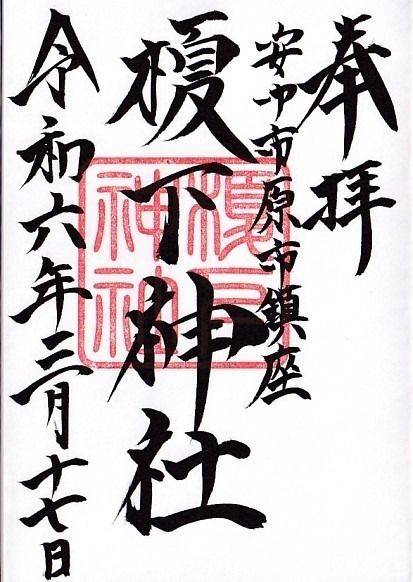 奉拝
安中市原市鎮座
榎下神社
榎下神社
令和六年三月十七日